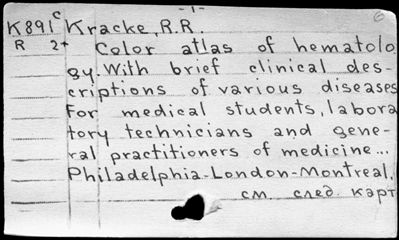 -1-
6
K891c Kracke, R.R.
R 2+ Color atlas of hematolo
gy. With brief clinical des-
criptions of various diseases
For medical students, labora
tory technicians and gene-
ral practitioners of medicine...
Philadelphia-London-Montreal,
см. след. карт